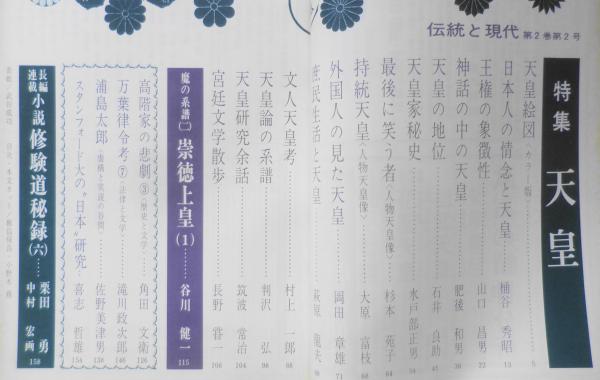 伝統と現代 第2巻第2号
特集 天皇
天皇絵図〈カラー版〉 5
日本人の情念と天皇 桶谷 秀昭 13
王権の象徴性 山口 昌男 22
神話の中の天皇 肥後 和男 30
天皇の地位 石井 良助 45
天皇家秘史 水戸部正男 54
最後に笑う者〈人物天皇像〉 杉本 苑子 64
持統天皇〈人物天皇像〉 大原 富枝 68
外国人の見た天皇 岡田 章雄 71
庶民生活と天皇 萩原 龍夫
文人天皇考 村上 一郎 88
天皇論の系譜 判沢 弘 98
天皇研究余話 筑波 常治 104
宮廷文学散歩 長野 甞一 106
魔の系譜(二) 崇徳上皇(1) 谷川 健一 115
高階家の悲劇③〈歴史と文学〉 角田 文衛 126
万葉律令考⑦〈法律と文学〉 滝川政次郎 146
浦島太郎〈虚構と実説の谷間〉 佐野美津男 138
スタンフォード大の〝日本〟研究 喜志 哲雄 154
長編連載小説 修験道秘録(六) 栗田 勇 中村 宏画 158